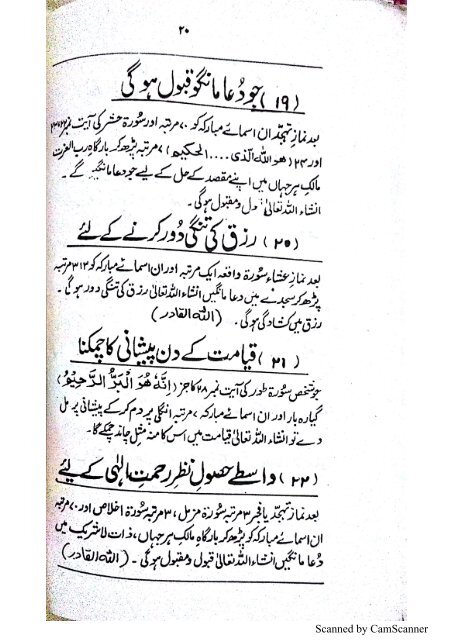 ۲۰
(۱۹) جو دُعا مانگو قبول ہوگی
بعد نماز تہجد ان اسمائے مبارکہ کو ۷۰ مرتبہ اور سورۃ حشر کی آیت نمبر ۲۲،۲۳
اور ۲۴ (ھو اللہ الّذی .... الحکیم) ۷ مرتبہ پڑھ کر بارگاہِ رب العزت
مالکِ ہر جہاں میں اپنے مقصد کے حل کے لیے جو دعا مانگیں گے ۔
انشاء اللہ تعالیٰ قبول و مقبول ہوگی ۔
(۲۰) رزق کی تنگی دُور کرنے کے لئے
بعد نماز عشاء سورۃ واقعہ ایک مرتبہ اور ان اسمائے مبارکہ کو ۳۱۳ مرتبہ
پڑھ کر سجدے میں دعا مانگیں انشاء اللہ تعالیٰ رزق کی تنگی دور ہوگی ۔
رزق میں کشادگی ہوگی ۔ (اللہ القادر)
(۲۱) قیامت کے دن پیشانی کا چمکنا
جو شخص سورۃ طور کی آیت نمبر ۲۸ کا جز (اِنَّهٗ هُوَ الْبَرُّ الرَّحِیْمُ)
گیارہ بار اور ان اسمائے مبارکہ ۷ مرتبہ انگلی پر دم کر کے پیشانی پر مل
دے تو انشاء اللہ تعالیٰ قیامت میں اس کا منہ مثل چاند چمکے گا۔
(۲۲) واسطے حصولِ نظر رحمتِ الٰہی کے لیئے
بعد نماز تہجد یا فجر ۳ مرتبہ سورۃ مزمل ، ۳ مرتبہ سورۃ اخلاص اور ۷۰ مرتبہ
ان اسمائے مبارکہ کو پڑھ کر بارگاہِ مالکِ ہر جہاں ، ذات لاشریک میں
دُعا مانگیں انشاء اللہ تعالیٰ قبول و مقبول ہوگی ۔ (اللہ القادر)
Scanned by CamScanner